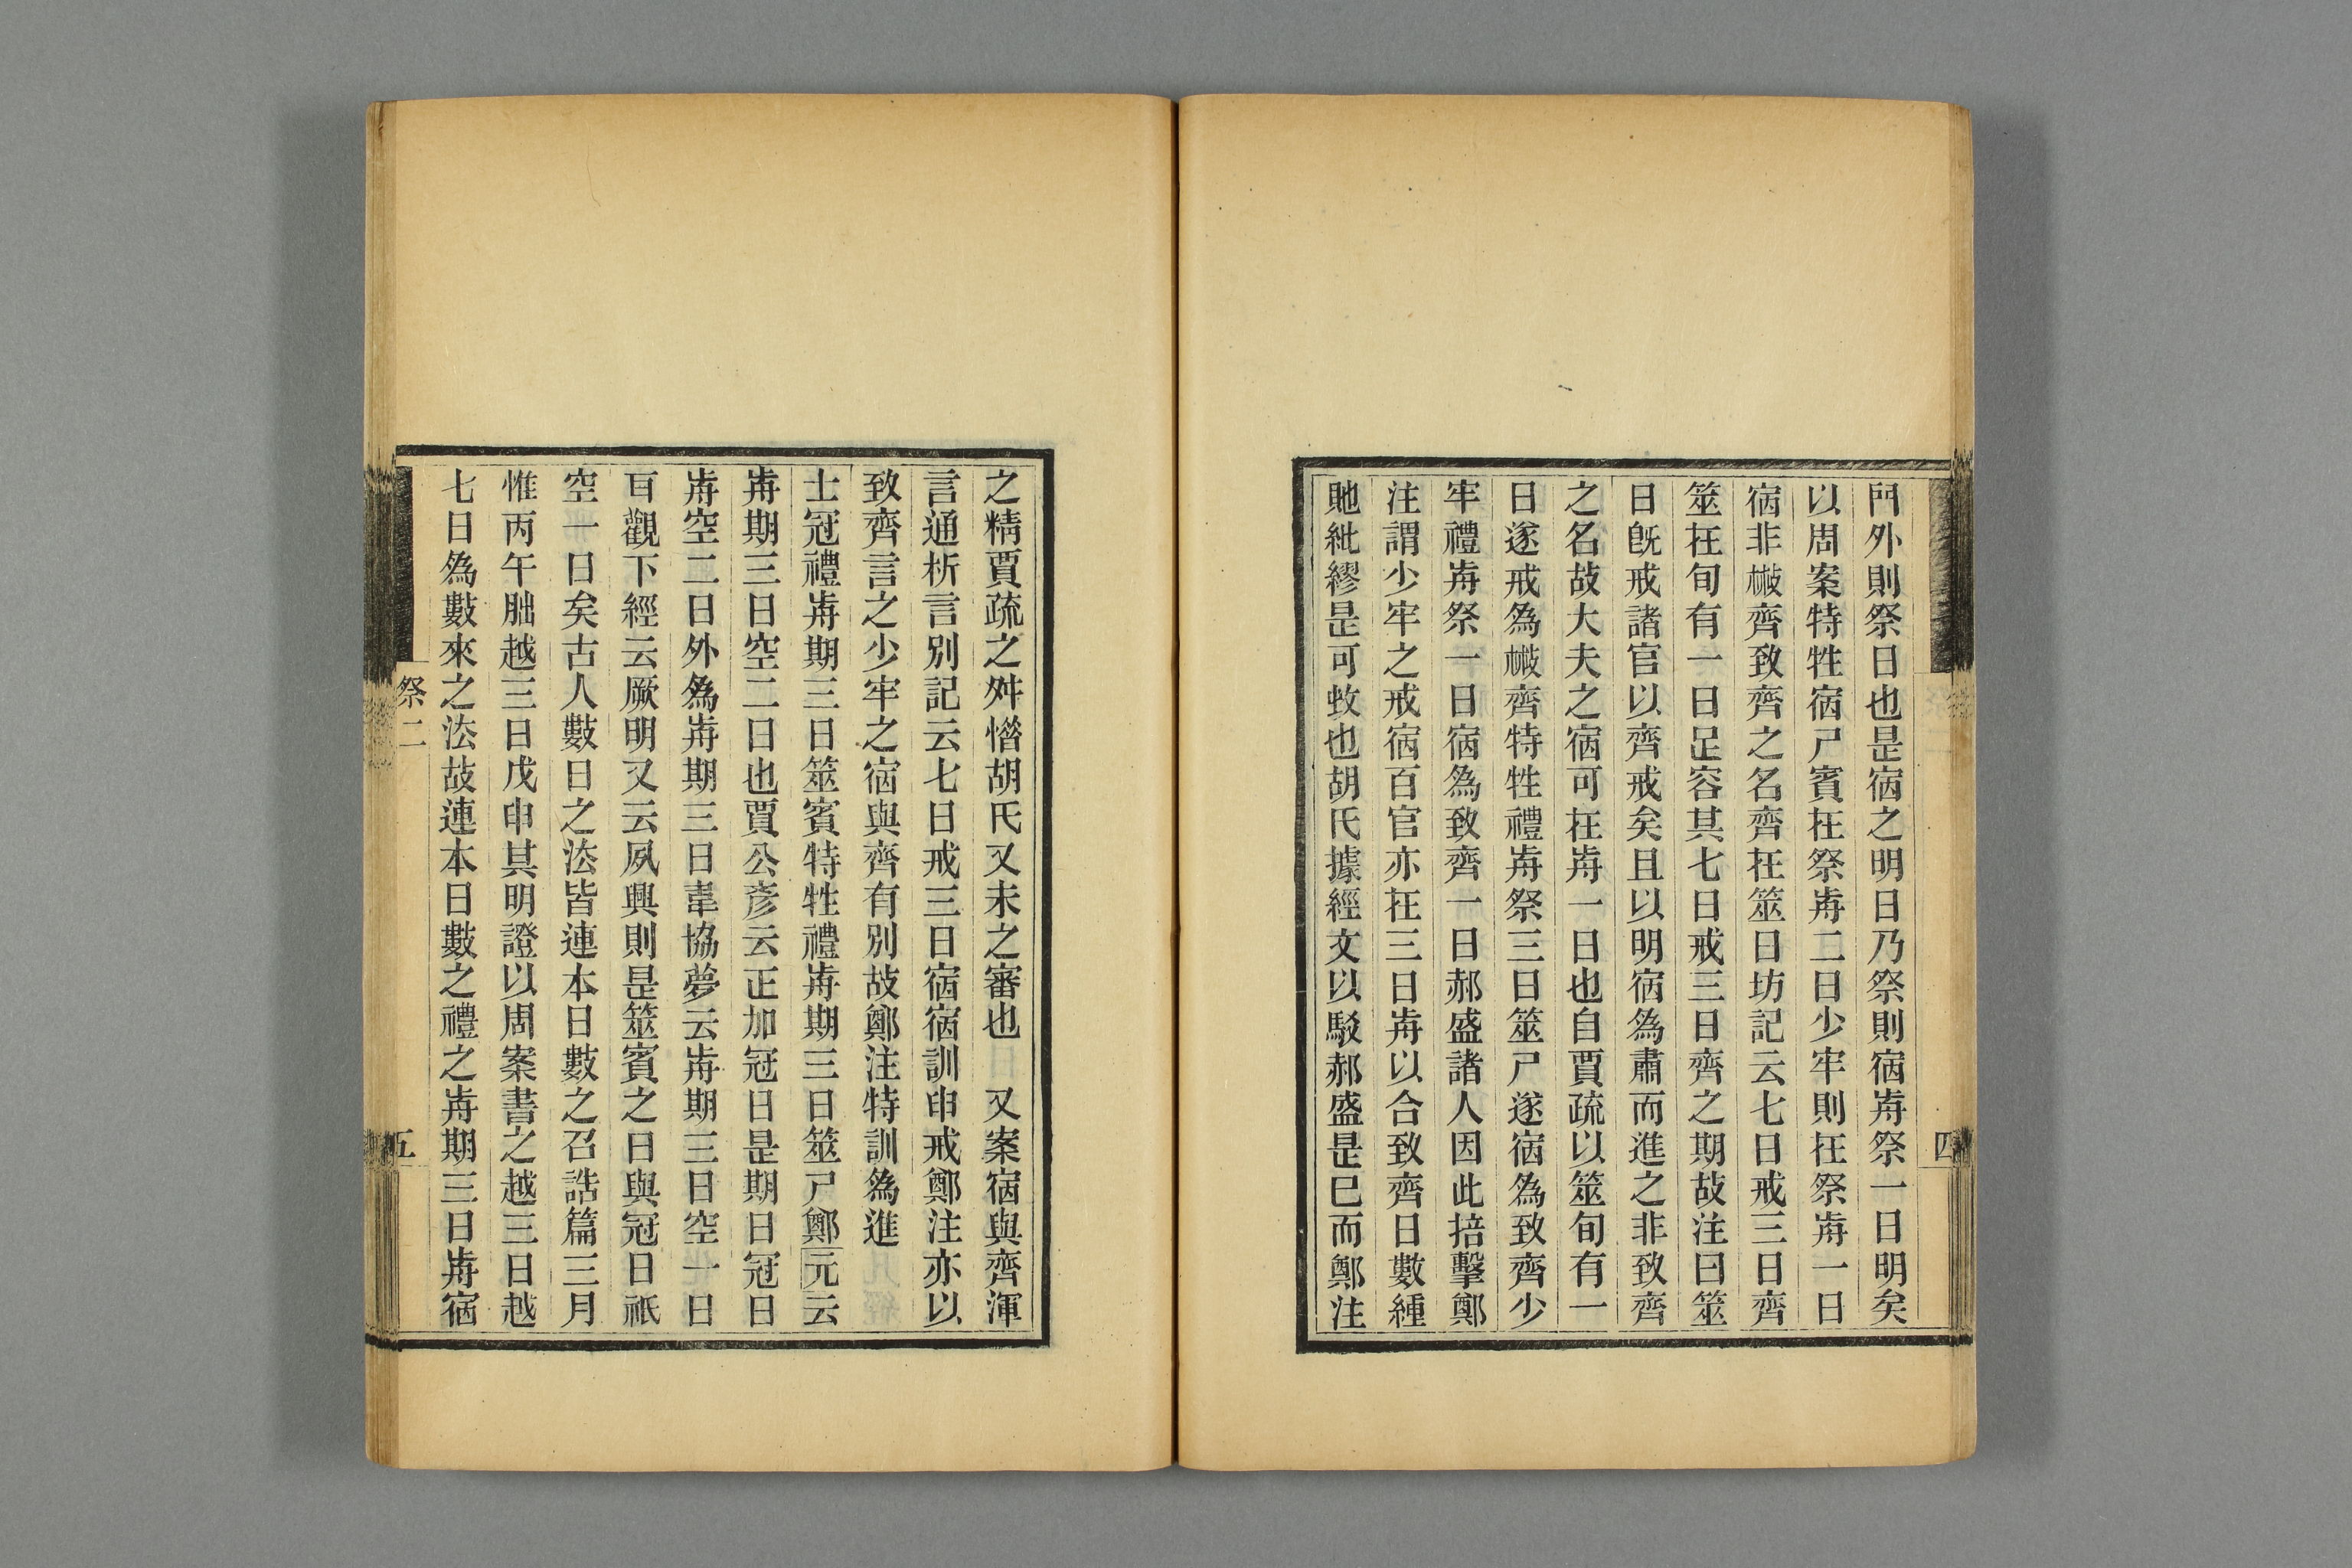 門外則祭日也是宿之明日乃祭則宿歬祭一日明矣
以周案特牲宿尸賓在祭歬二日少牢則在祭歬一日
宿非㪔齊致齊之名齊在筮日坊記云七日戒三日齊
筮在旬有一日足容其七日戒三日齊之期故注曰筮
日旣戒諸官以齊戒矣且以明宿爲肅而進之非致齊
之名故大夫之宿可在歬一日也自賈疏以筮旬有一
日遂戒爲㪔齊特牲禮歬祭三日筮尸遂宿爲致齊少
牢禮歬祭一日宿爲致齊一日郝盛諸人因此掊擊鄭
注謂少牢之戒宿百官亦在三日歬以合致齊日數緟
貤紕繆是可蚊也胡氏據經文以駁郝盛是已而鄭注
之精賈疏之舛憯胡氏又未之審也 又案宿與齊渾
言通析言別記云七日戒三日宿宿訓申戒鄭注亦以
致齊言之少牢之宿與齊有別故鄭注特訓爲進
士冠禮歬期三日筮賓特牲禮歬期三日筮尸鄭元云
歬期三日空二日也賈公彥云正加冠日是期日冠日
歬空二日外爲歬期三日韋協夢云歬期三日空一日
耳觀下經云厥明又云夙興則是筮賓之日與冠日祇
空一日矣古人數日之法皆連本日數之召誥篇三月
惟丙午朏越三日戊申其明證以周案書之越三日越
七日爲數來之法故連本日數之禮之歬期三日歬宿
祭二
五
四